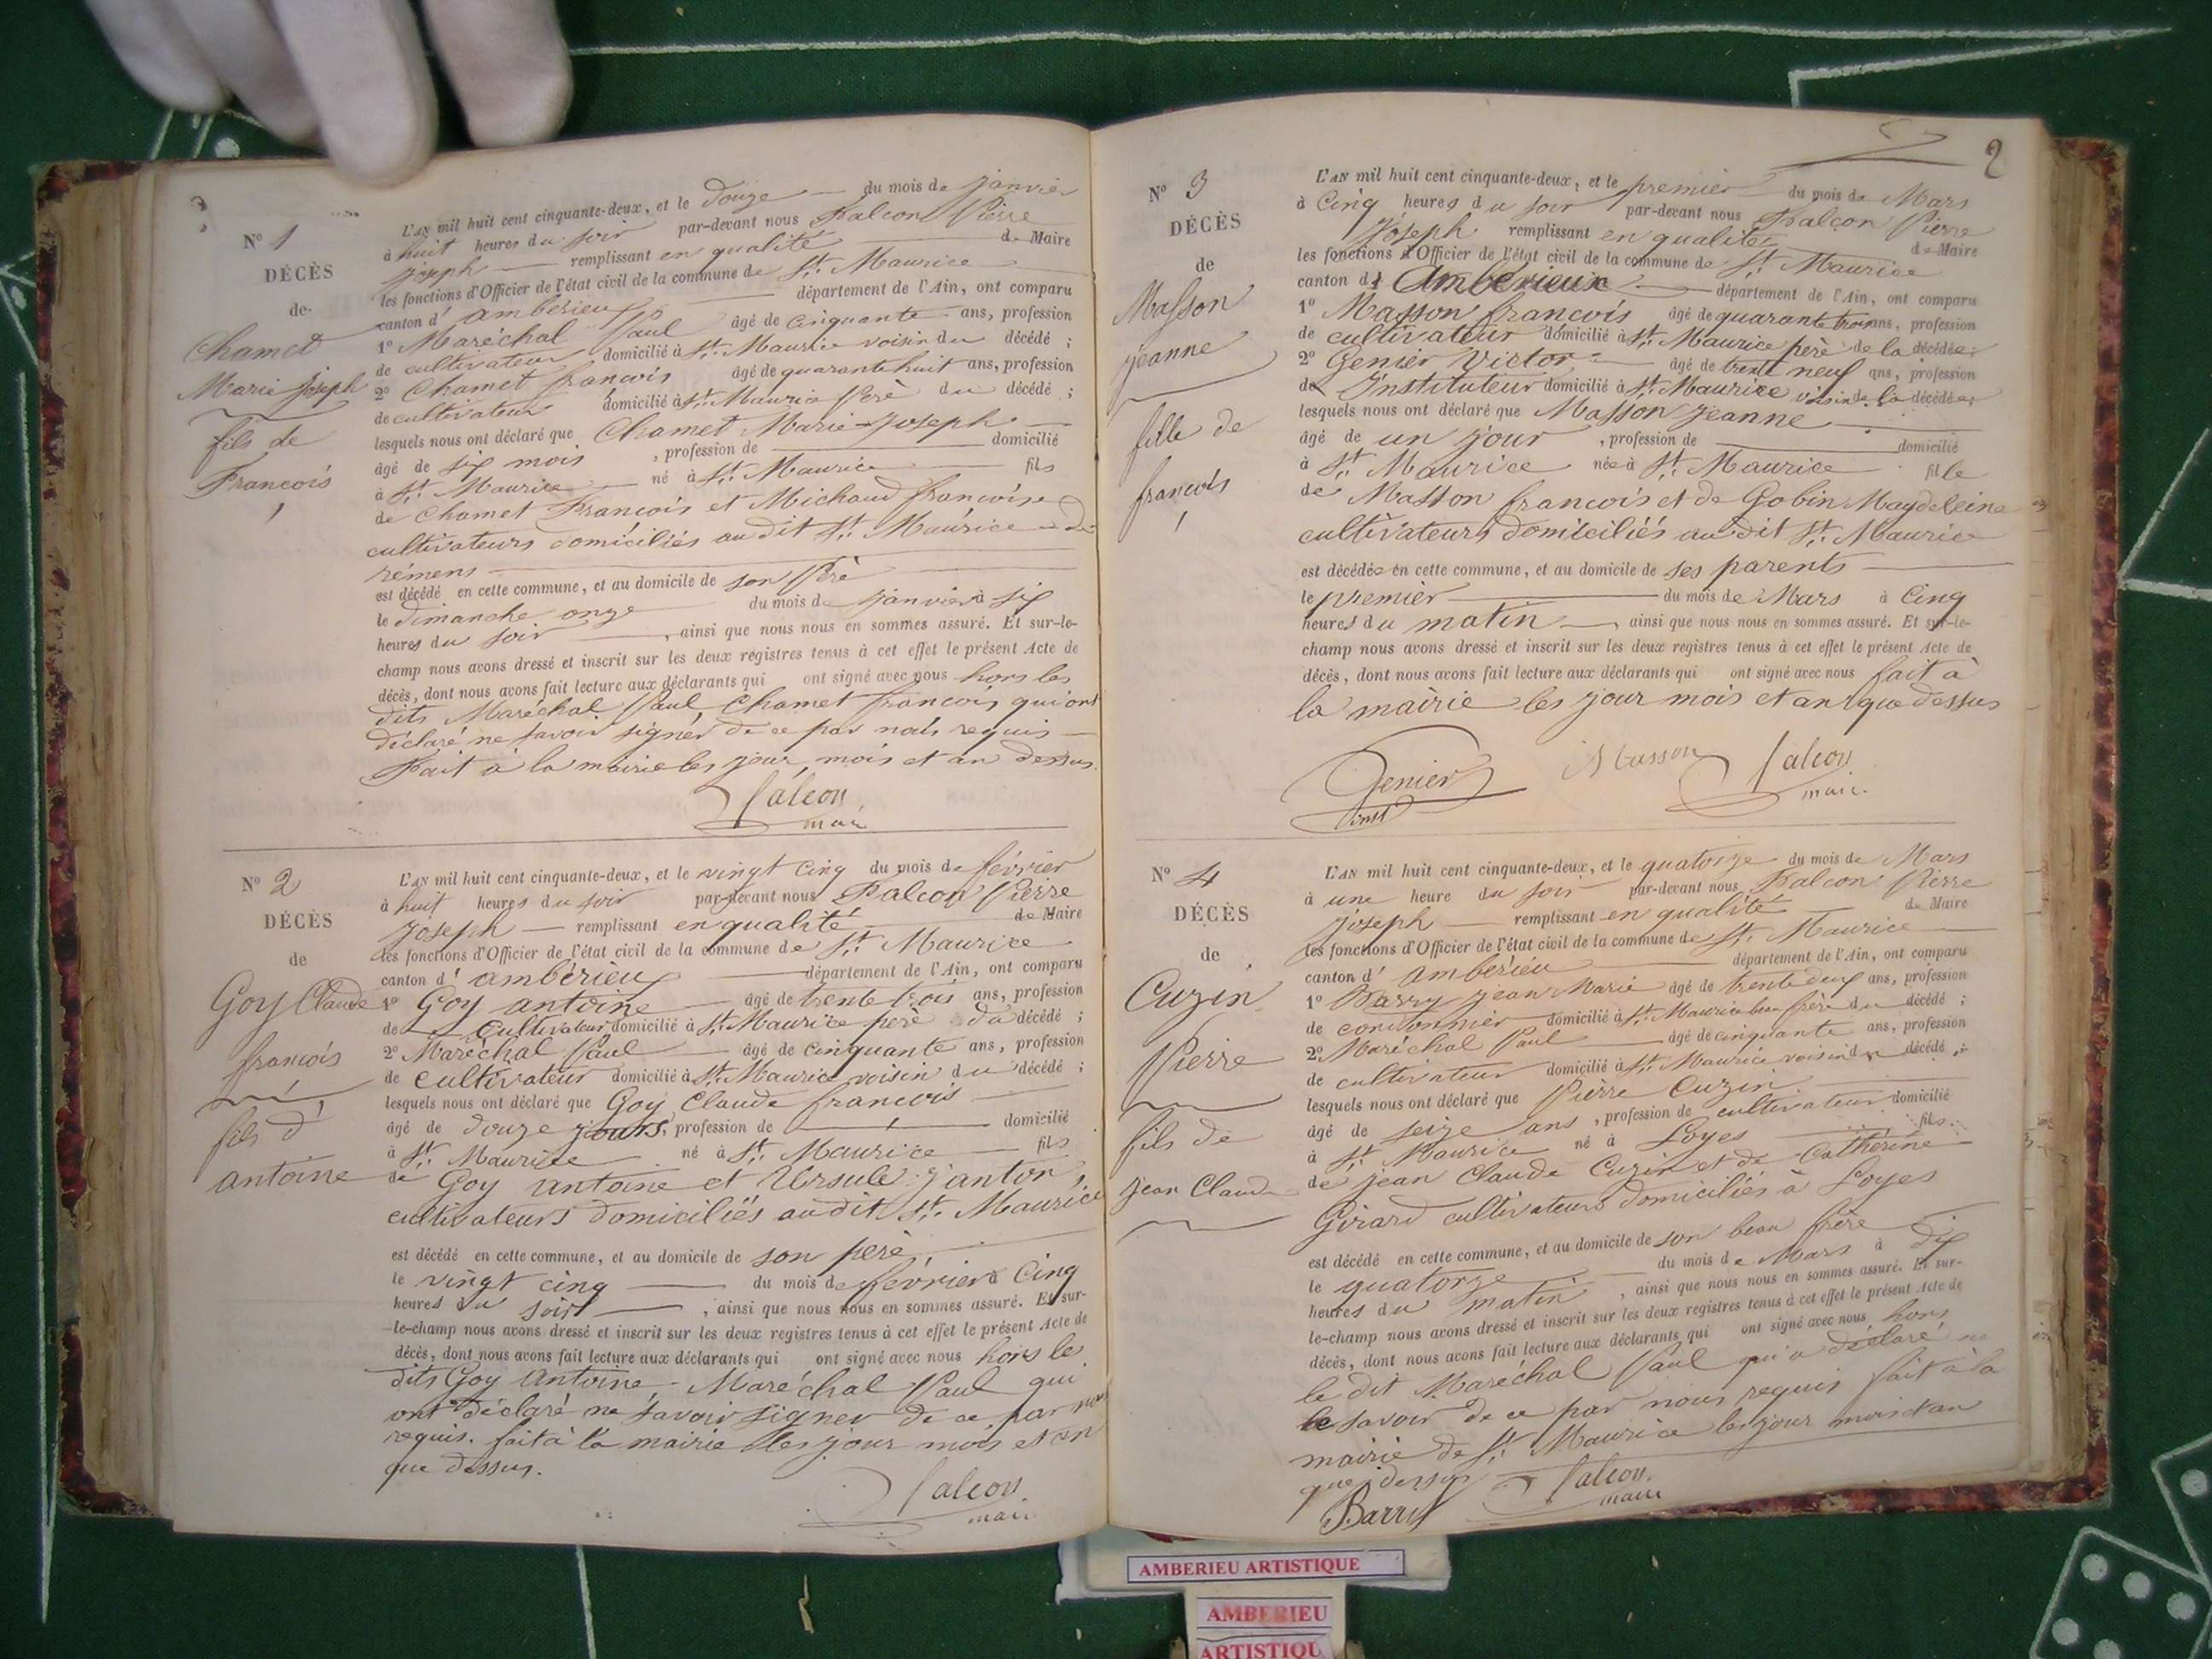 N° 1
DÉCÈS
de
Chamet
Marie Joseph
fils de
François
L'AN mil huit cent cinquante-deux, et le douze du mois de janvier
à huit heures du soir par-devant nous Falcon Pierre
joseph remplissant en qualité de Maire
les fonctions d'Officier de l'état civil de la commune de St. Maurice
canton d' ambérieux département de l'Ain, ont comparu
1° Maréchal Paul âgé de cinquante ans, profession
de cultivateur domicilié à St. Maurice voisin du décédé ;
2° Chamet françois âgé de quarante huit ans, profession
de cultivateur domicilié à St. Maurice Père du décédé ;
lesquels nous ont déclaré que Chamet Marie-Joseph
âgé de six mois , profession de domicilié
à St. Maurice né à St. Maurice fils
de Chamet François et Michaud françoise
cultivateurs domiciliés au dit St. Maurice - de
rémens
est décédé en cette commune, et au domicile de son Père
le dimanche onze du mois de janvier à six
heures du soir , ainsi que nous nous en sommes assuré. Et sur-le-
champ nous avons dressé et inscrit sur les deux registres tenus à cet effet le présent Acte de
décès, dont nous avons fait lecture aux déclarants qui ont signé avec nous hors les
dits Maréchal Paul, Chamet françois qui ont
déclaré ne savoir signer de ce par nous requis
Fait à la mairie les jour, mois et an dessus.
Falcon
maire
N° 2
DÉCÈS
de
Goy Claude
françois
fils d'
antoine
L'AN mil huit cent cinquante-deux, et le vingt cinq du mois de février
à huit heures du soir par-devant nous Falcon Pierre
Joseph remplissant en qualité de Maire
les fonctions d'Officier de l'état civil de la commune de St. Maurice
canton d' ambérieux département de l'Ain, ont comparu
1° Goy antoine âgé de trente trois ans, profession
de Cultivateur domicilié à St. Maurice père du décédé ;
2° Maréchal Paul âgé de cinquante ans, profession
de cultivateur domicilié à St. Maurice voisin du décédé ;
lesquels nous ont déclaré que Goy Claude françois
âgé de douze jours, profession de domicilié
à St. Maurice né à St. Maurice fils
de Goy antoine et Ursule Janton,
cultivateurs domiciliés au dit St. Maurice
est décédé en cette commune, et au domicile de son père,
le vingt cinq du mois de février à Cinq
heures du soir , ainsi que nous nous en sommes assuré. Et sur-
le-champ nous avons dressé et inscrit sur les deux registres tenus à cet effet le présent Acte de
décès, dont nous avons fait lecture aux déclarants qui ont signé avec nous hors le
dits Goy Antoine, Maréchal Paul qui
ont déclaré ne savoir signer de ce par nous
requis. fait à la mairie les jour mois et an
que dessus.
Falcon
maire
2
N° 3
DÉCÈS
de
Masson
jeanne
fille de
françois
L'AN mil huit cent cinquante-deux, et le premier du mois de Mars
à Cinq heures du soir par-devant nous Falcon Pierre
Joseph remplissant en qualité de Maire
les fonctions d'Officier de l'état civil de la commune de St. Maurice
canton d' Ambérieux département de l'Ain, ont comparu
1° Masson françois âgé de quarante trois ans, profession
de cultivateur domicilié à St. Maurice père de la décédée ;
2° Genier Victor âgé de trente neuf ans, profession
de Instituteur domicilié à St. Maurice voisin de la décédée ;
lesquels nous ont déclaré que Masson Jeanne
âgé de un jour , profession de domicilié
à St. Maurice née à St. Maurice fille
de Masson françois et de Gobin Magdeleine
cultivateurs domiciliés au dit St. Maurice
est décédée en cette commune, et au domicile de ses parents
le premier du mois de Mars à Cinq
heures du matin , ainsi que nous nous en sommes assuré. Et sur-le-
champ nous avons dressé et inscrit sur les deux registres tenus à cet effet le présent Acte de
décès, dont nous avons fait lecture aux déclarants qui ont signé avec nous fait à
la mairie les jour mois et an que dessus
Genier Masson Falcon
inst maire
N° 4
DÉCÈS
de
Cuzin
Pierre
fils de
jean Claude
L'AN mil huit cent cinquante-deux, et le quatorze du mois de Mars
à une heure du soir par-devant nous Falcon Pierre
joseph remplissant en qualité de Maire
les fonctions d'Officier de l'état civil de la commune de St. Maurice
canton d' ambérieu département de l'Ain, ont comparu
1° Barry jean Marie âgé de trente deux ans, profession
de cordonnier domicilié à St. Maurice beau frère du décédé ;
2° Maréchal Paul âgé de cinquante ans, profession
de cultivateur domicilié à St. Maurice voisin du décédé ;
lesquels nous ont déclaré que Pierre Cuzin
âgé de seize ans , profession de cultivateur domicilié
à St. Maurice né à Loyes fils
de jean Claude Cuzin et de Catherine
Girard cultivateurs domiciliés à Loyes
est décédé en cette commune, et au domicile de son beau frère
le quatorze du mois de Mars à dix
heures du matin , ainsi que nous nous en sommes assuré. Et sur-
le-champ nous avons dressé et inscrit sur les deux registres tenus à cet effet le présent Acte de
décès, dont nous avons fait lecture aux déclarants qui ont signé avec nous hors
le dit Maréchal Paul qui a déclaré ne
le savoir de ce par nous requis fait à la
mairie de St. Maurice les jour mois et an
que dessus Falcon
Barry maire
AMBERIEU ARTISTIQUE
AMBERIEU
ARTISTIQU